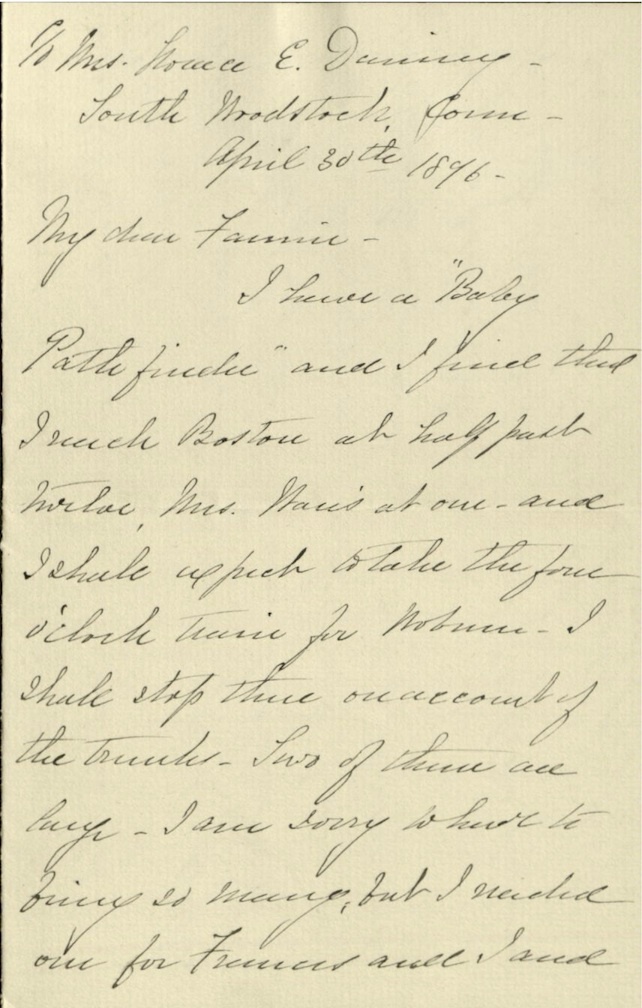 ℅ Mrs. Horace E. Deming -
South Woodstock, Conn -
April 30th 1896 -
My dear Fannie -
I have a "Baby
Pathfinder" and I find that
I reach Boston at half past
twelve, Mrs. at one - and
I shall expect to take the four
o'clock train for Woburn - I
shall stop there on account of
the trunks - Two of them are
large - I am sorry to have to
bring so many, but I needed
one for Frances and I and